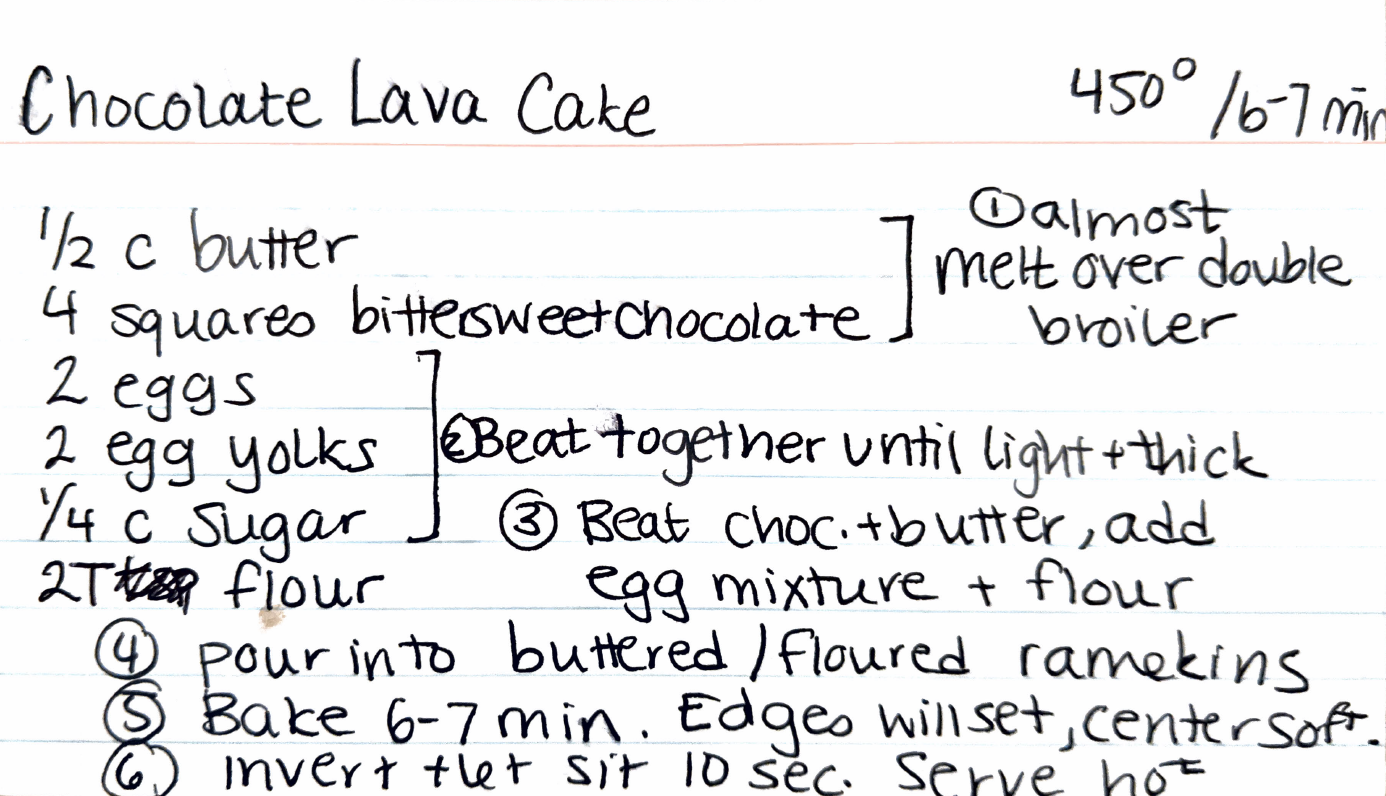 Chocolate Lava Cake 450° /6-7 min
1/2 c butter
4 squares bittersweet chocolate
① almost
melt over double
broiler
2 eggs
2 egg yolks
1/4 c sugar
② Beat together until light + thick
2T flour
③ Beat choc. + butter, add
egg mixture + flour
④ pour into buttered / floured ramekins
⑤ Bake 6-7 min. Edges will set, center soft.
⑥ invert + let sit 10 sec. Serve hot